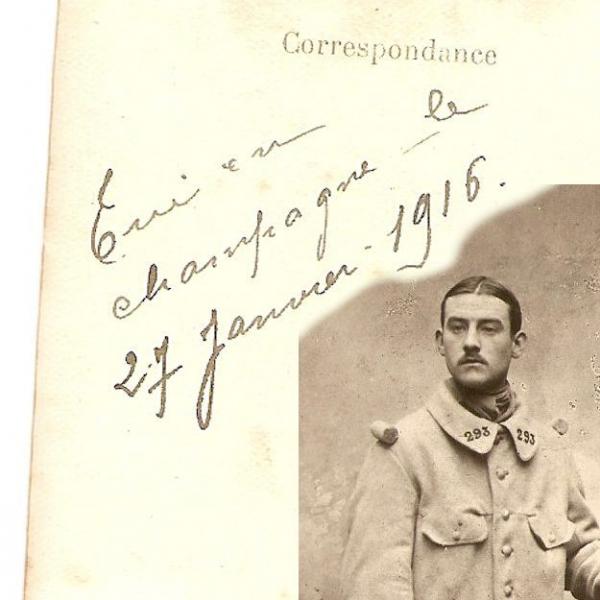 Correspondance
Tué en
champagne le
27 Janvier 1916.
293 293